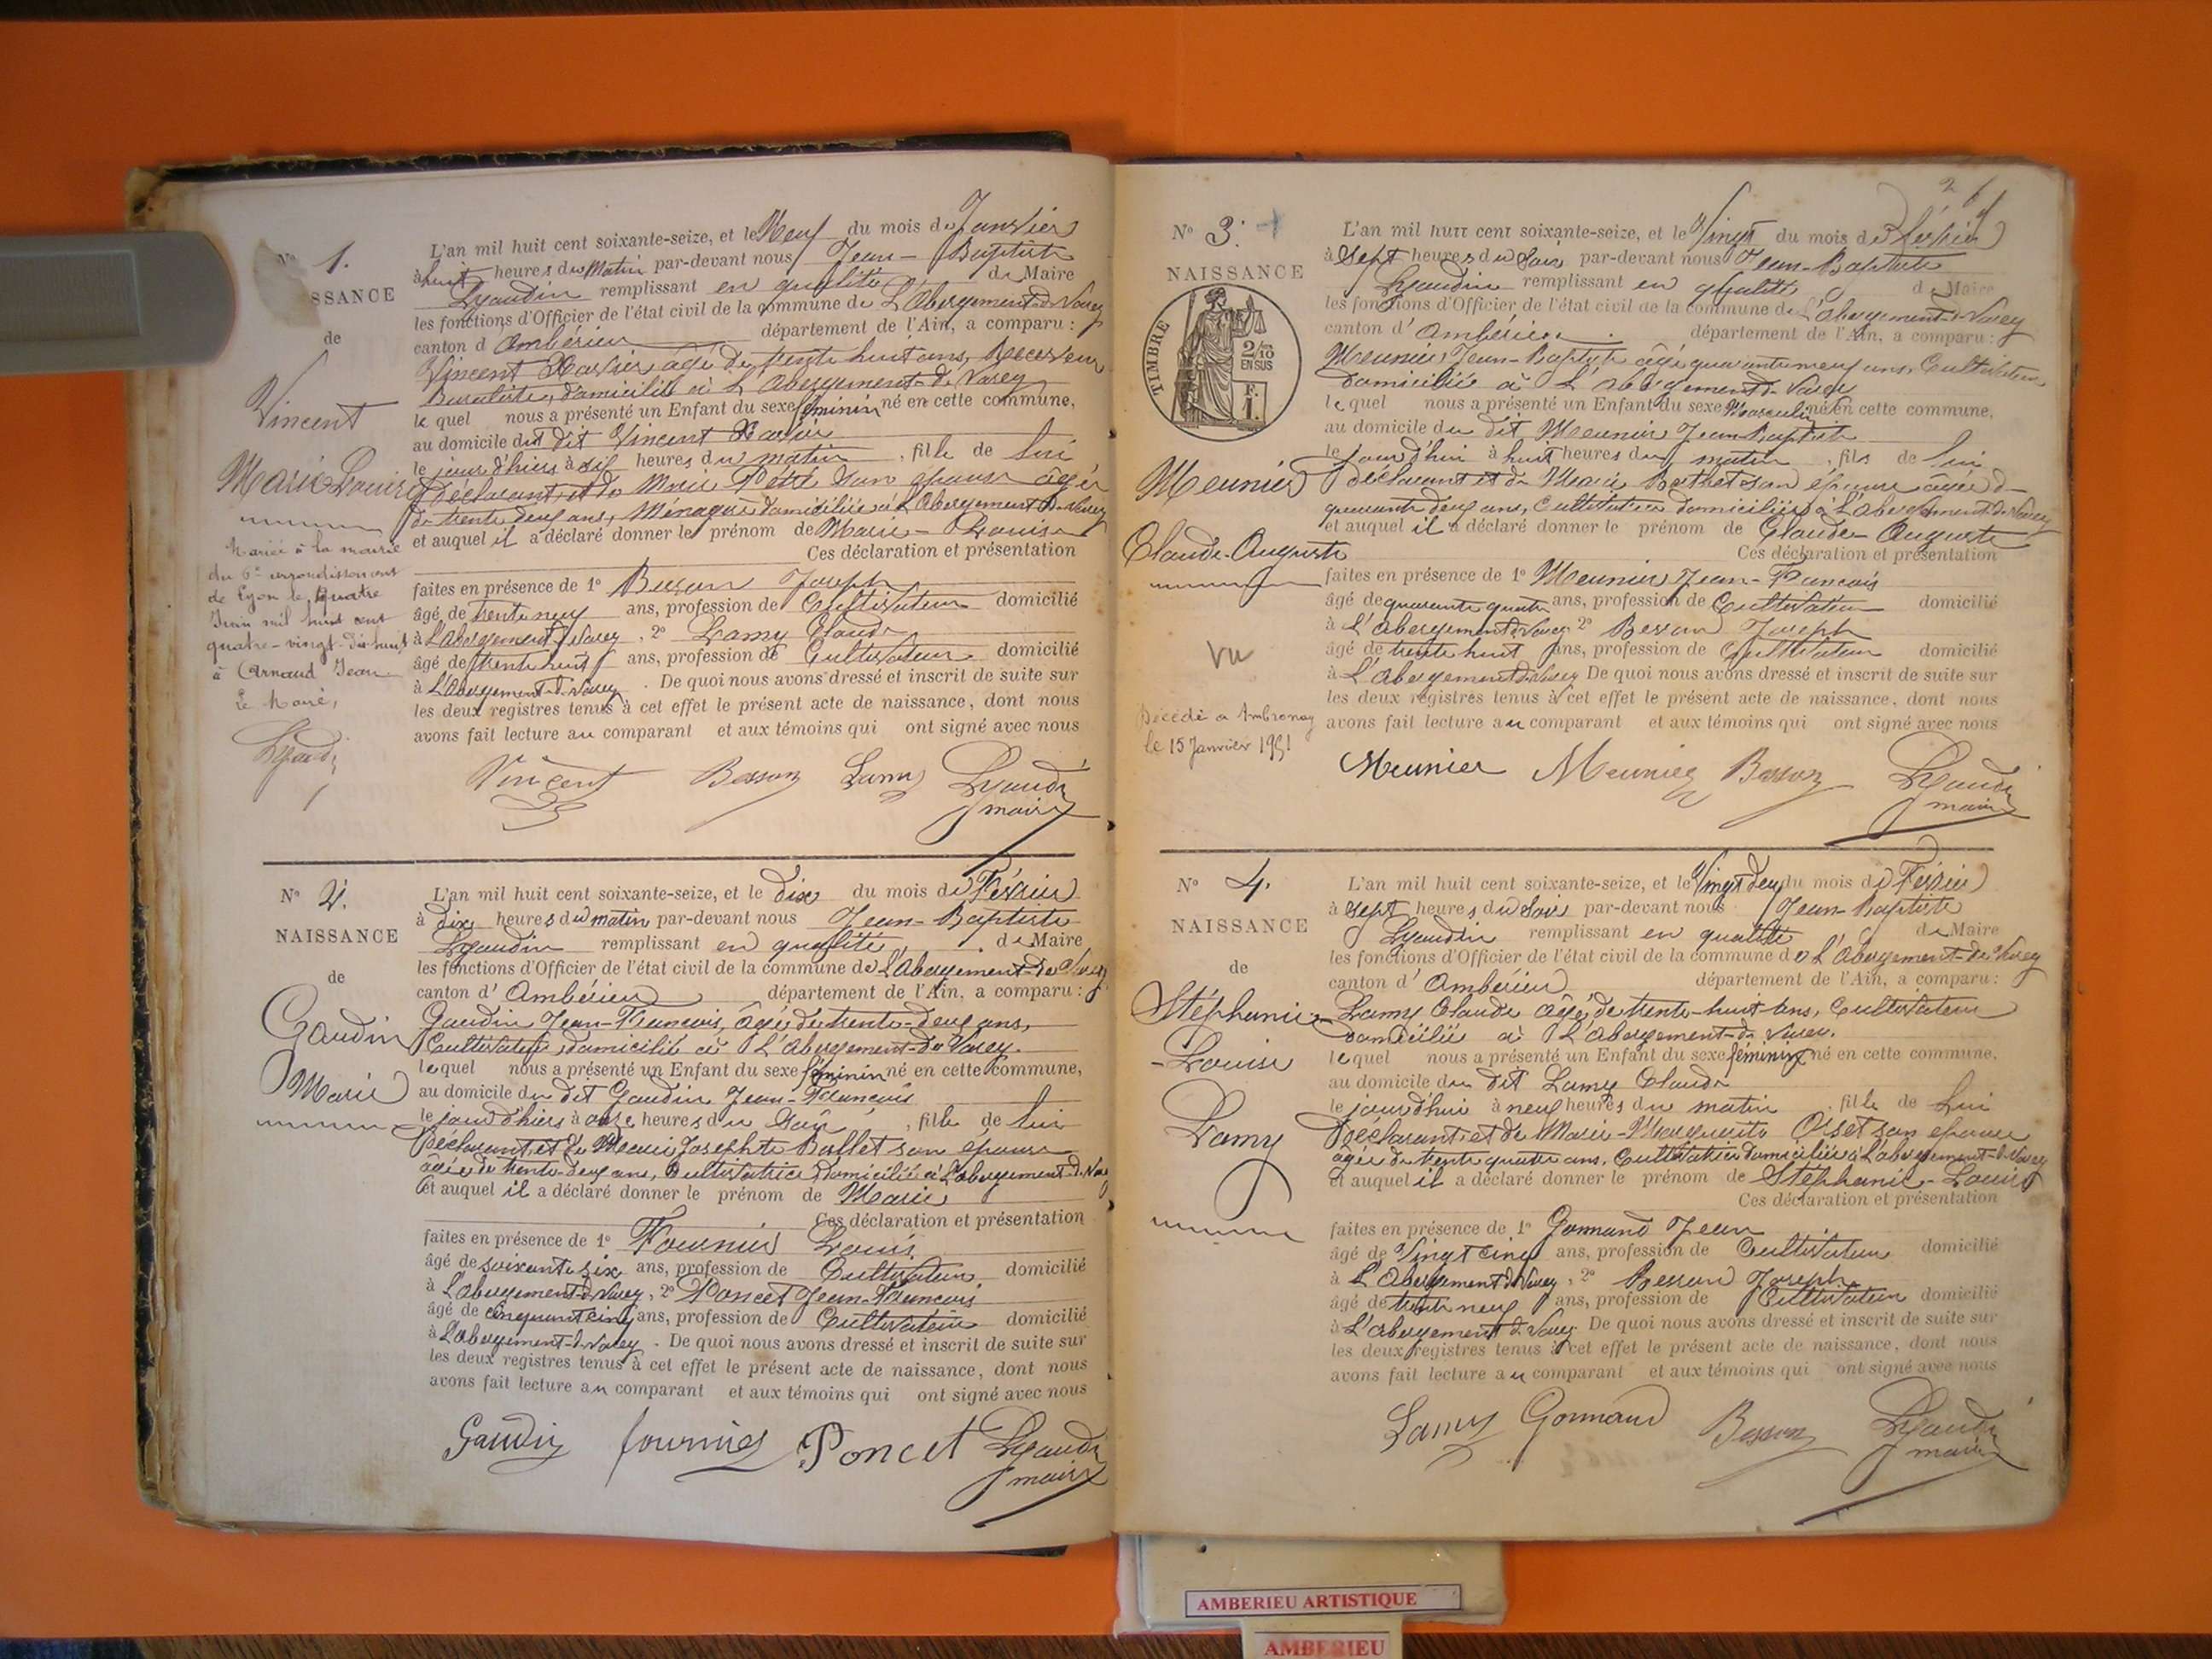 N° 1.
SSANCE
de
Vincent
Marie Louise
Mariée à la mairie
du 6e arrondissement
de Lyon le quatre
Juin mil huit cent
quatre-vingt-dix-huit
à Arnaud Jean
Le Maire,
L'an mil huit cent soixante-seize, et le Neuf du mois de Janvier
à huit heures du Matin par-devant nous Jean-Baptiste
Lyaudin remplissant en qualité de Maire
les fonctions d'Officier de l'état civil de la commune de L'Abergement-de-Varey
canton d'Ambérieu département de l'Ain, a comparu :
Vincent Xavier âgé de trente huit ans, Receveur
Buraliste, domicilié à L'Abergement-de-Varey
le quel nous a présenté un Enfant du sexe féminin né en cette commune,
au domicile du dit Vincent Xavier
le jour d'hier à six heures du matin, fille de lui
Déclarant et de Marie Petit son épouse âgée
de trente deux ans, Ménagère domiciliée à L'Abergement-de-Varey
et auquel il a déclaré donner le prénom de Marie-Louise
Ces déclaration et présentation
faites en présence de 1° Besson Joseph
âgé de trente neuf ans, profession de Cultivateur domicilié
à L'Abergement de Varey, 2° Lamy Claude
âgé de trente huit ans, profession de Cultivateur domicilié
à L'Abergement-de-Varey. De quoi nous avons dressé et inscrit de suite sur
les deux registres tenus à cet effet le présent acte de naissance, dont nous
avons fait lecture au comparant et aux témoins qui ont signé avec nous
Vincent Besson Lamy Lyaudin
maire
N° 2.
NAISSANCE
de
Gaudin
Marie
L'an mil huit cent soixante-seize, et le dix du mois de Février
à dix heures du matin par-devant nous Jean-Baptiste
Lyaudin remplissant en qualité de Maire
les fonctions d'Officier de l'état civil de la commune de L'Abergement-de-Varey
canton d'Ambérieu département de l'Ain, a comparu :
Gaudin Jean-François, âgé de trente-deux ans,
Cultivateur, domicilié à L'Abergement-de-Varey.
lequel nous a présenté un Enfant du sexe féminin né en cette commune,
au domicile du dit Gaudin Jean-François
le jour d'hier à onze heures du soir, fille de lui
Déclarant, et de Marie Josephte Ballet son épouse
âgée de trente-deux ans, Cultivatrice domiciliée à L'abergement-de-Varey
et auquel il a déclaré donner le prénom de Marie
Ces déclaration et présentation
faites en présence de 1° Fournier Louis
âgé de soixante six ans, profession de Cultivateur domicilié
à L'abergement-de-Varey, 2° Poncet Jean-François
âgé de cinquante cinq ans, profession de Cultivateur domicilié
à L'abergement-de-Varey. De quoi nous avons dressé et inscrit de suite sur
les deux registres tenus à cet effet le présent acte de naissance, dont nous
avons fait lecture au comparant et aux témoins qui ont signé avec nous
Gaudin fournier Poncet Lyaudin
maire
N° 3.
NAISSANCE
TIMBRE
2/10
EN SUS
F.
1.
Meunier
Claude-Auguste
Vu
Décédé à Ambronay
le 15 Janvier 1951
L'an mil huit cent soixante-seize, et le Vingt du mois de Février
à Sept heures du Soir par-devant nous Jean-Baptiste
Lyaudin remplissant en qualité de Maire
les fonctions d'Officier de l'état civil de la commune de L'abergement-de-Varey
canton d'Ambérieu département de l'Ain, a comparu :
Meunier Jean-Baptiste âgé quarante neuf ans, Cultivateur
domicilié à L'abergement-de-Varey
lequel nous a présenté un Enfant du sexe Masculin né en cette commune,
au domicile du dit Meunier Jean-Baptiste
le jour d'hui à huit heures du matin, fils de lui
déclarant et de Marie Berthet son épouse âgée de
quarante deux ans, Cultivatrice domiciliée à L'abergement-de-Varey
et auquel il a déclaré donner le prénom de Claude-Auguste
Ces déclaration et présentation
faites en présence de 1° Meunier Jean-François
âgé de quarante quatre ans, profession de Cultivateur domicilié
à L'abergement-de-Varey 2° Besson Joseph
âgé de trente huit ans, profession de Cultivateur domicilié
à L'abergement-de-Varey De quoi nous avons dressé et inscrit de suite sur
les deux registres tenus à cet effet le présent acte de naissance, dont nous
avons fait lecture au comparant et aux témoins qui ont signé avec nous
Meunier Meunier Besson Lyaudin
maire
N° 4.
NAISSANCE
de
Stéphanie
-Louise
Lamy
L'an mil huit cent soixante-seize, et le Vingt deux du mois de Février
à Sept heures du Soir par-devant nous Jean-Baptiste
Lyaudin remplissant en qualité de Maire
les fonctions d'Officier de l'état civil de la commune de L'Abergement-de-Varey
canton d'Ambérieu département de l'Ain, a comparu :
Lamy Claude âgé de trente-huit ans, Cultivateur
domicilié à L'abergement-de-Varey.
lequel nous a présenté un Enfant du sexe féminin né en cette commune,
au domicile du dit Lamy Claude
le jourd'hui à neuf heures du matin, fille de Lui
Déclarant, et de Marie-Marguerite Orset son épouse
âgée de trente quatre ans, Cultivatrice domiciliée à L'abergement-de-Varey
et auquel il a déclaré donner le prénom de Stéphanie-Louise
Ces déclaration et présentation
faites en présence de 1° Gonnand Jean
âgé de Vingt Cinq ans, profession de Cultivateur domicilié
à L'Abergement de Varey, 2° Besson Joseph
âgé de trente neuf ans, profession de Cultivateur domicilié
à L'Abergement de Varey. De quoi nous avons dressé et inscrit de suite sur
les deux registres tenus à cet effet le présent acte de naissance, dont nous
avons fait lecture au comparant et aux témoins qui ont signé avec nous
Lamy Gonnand Besson Lyaudin
maire
AMBERIEU ARTISTIQUE
AMBERIEU